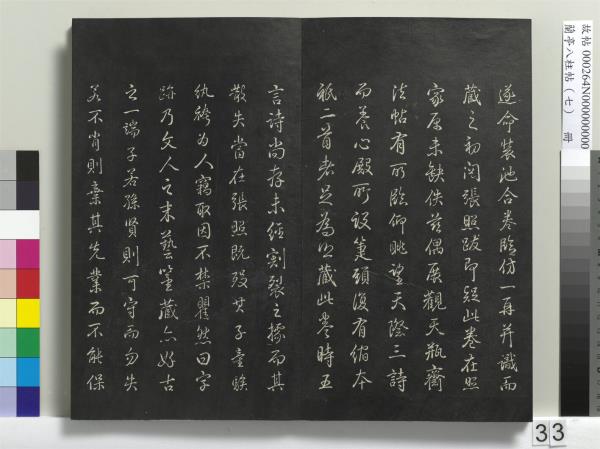 遂命裝池合卷臨仿一再并識而
藏之初閱張照跋即疑此卷在照
家原未缺佚茲偶展觀天瓶齋
法帖有所臨仰眺望天際三詩
而養心殿所設篋頭復有縮本
祇二首者足為照藏此卷時五
言詩尚存未經割裂之據而其
散失當在張照既歿其子童騃
紈袴為人竊取因不禁瞿然曰字
跡乃文人之末藝鑒藏亦好古
之一端子若孫賢則可守而勿失
若不肖則棄其先業而不能保
故帖 000264N000000000
蘭亭八柱帖（七） 冊
33